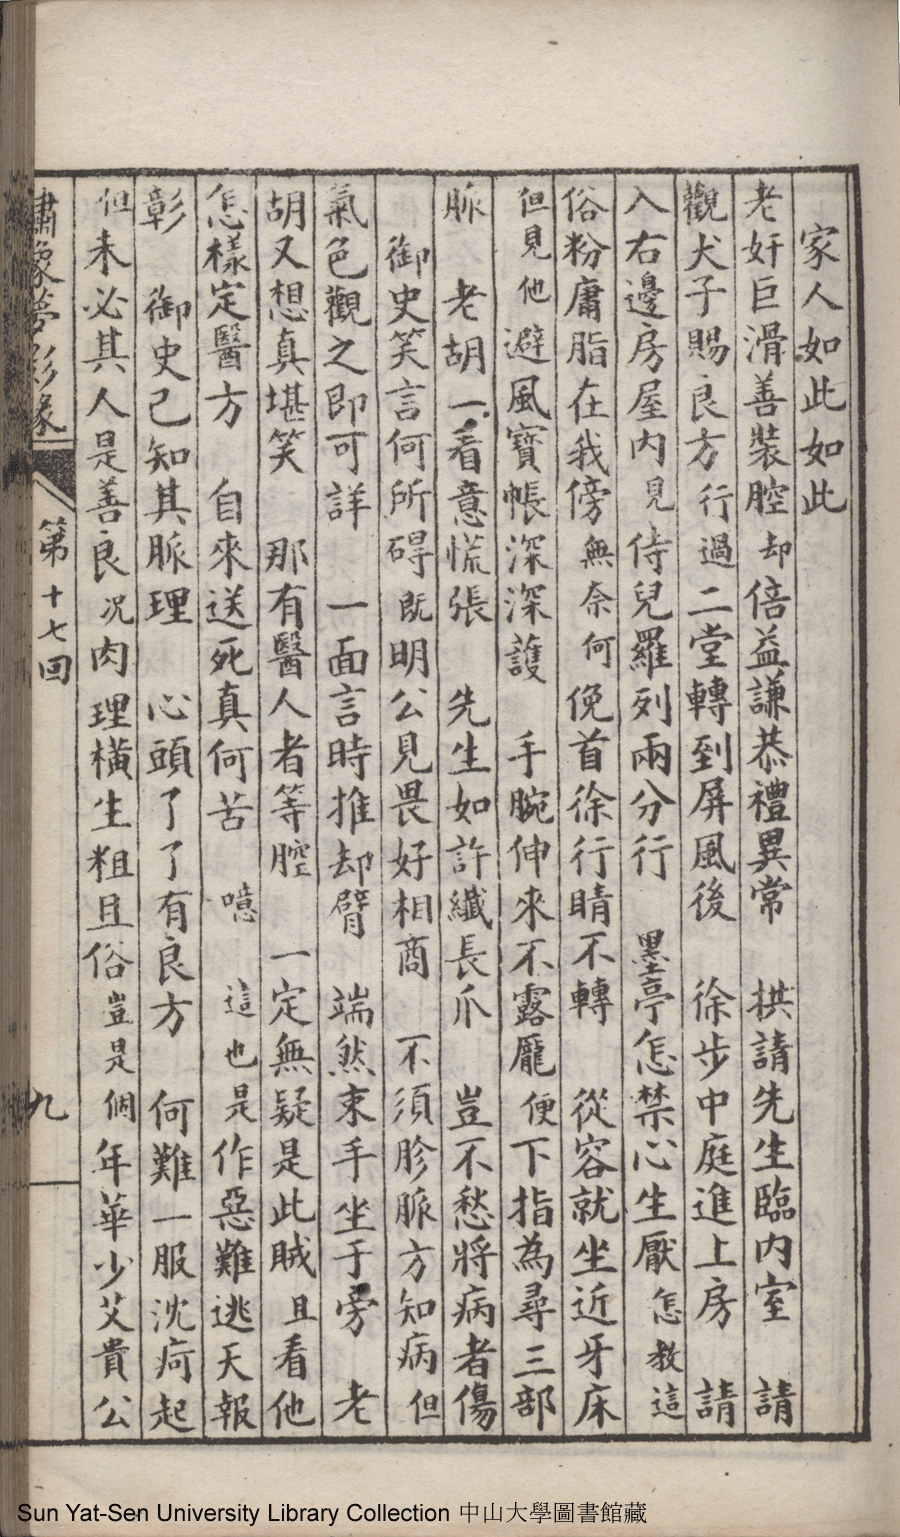 家人如此如此
老奸巨滑善裝腔却倍益謙恭禮異常　拱請先生臨內室　請
觀犬子賜良方行過二堂轉到屏風後　徐步中庭進上房　請
入右邊房屋內見侍兒羅列兩分行　墨亭怎禁心生厭怎教這
俗粉庸脂在我傍無奈何俛首徐行睛不轉　從容就坐近牙床
但見他避風寶帳深深護　手腕伸來不露龐便下指為尋三部
脈　老胡一看意慌張　先生如許纖長爪　豈不愁將病者傷
御史笑言何所碍既明公見畏好相商　不須胗脈方知病但
氣色觀之即可詳　一面言時推却臂　端然束手坐于旁　老
胡又想真堪笑　那有醫人者等腔　一定無疑是此賊且看他
怎樣定醫方　自來送死真何苦　噫　這也是作惡難逃天報
彰　御史已知其脈理　心頭了了有良方　何難一服沈疴起
但未必其人是善良况肉理橫生粗且俗豈是個年華少艾貴公
繡像夢影緣
第十七回
九
Sun Yat-Sen University Library Collection 中山大學圖書館藏